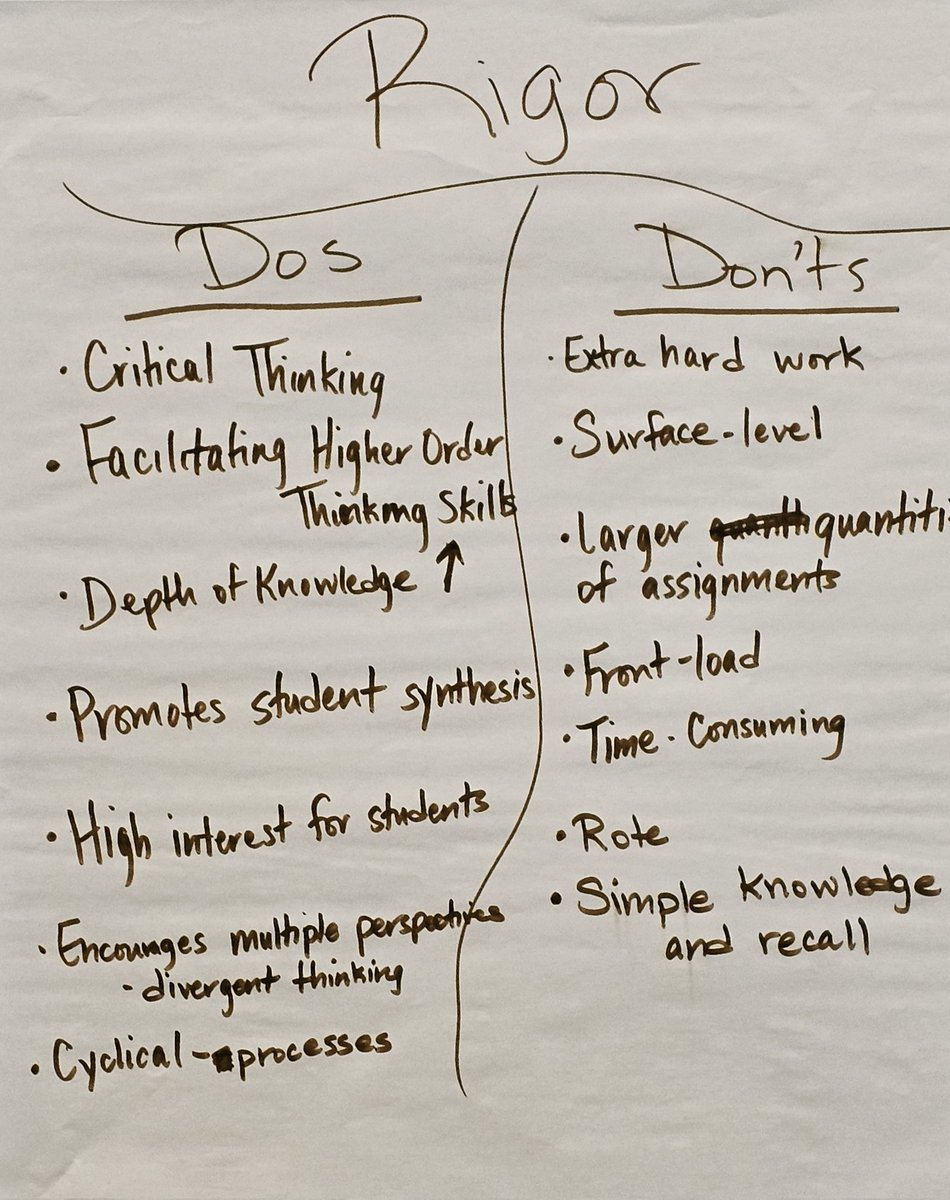 Rigor
Dos
• Critical Thinking
• Facilitating Higher Order
Thinking Skills
• Depth of Knowledge ↑
• Promotes student synthesis
• High interest for students
• Encourages multiple perspectives
- divergent thinking
• Cyclical - processes
Don'ts
• Extra hard work
• Surface-level
• Larger quantiti
of assignments
• Front-load
• Time-Consuming
• Rote
• Simple knowledge
and recall